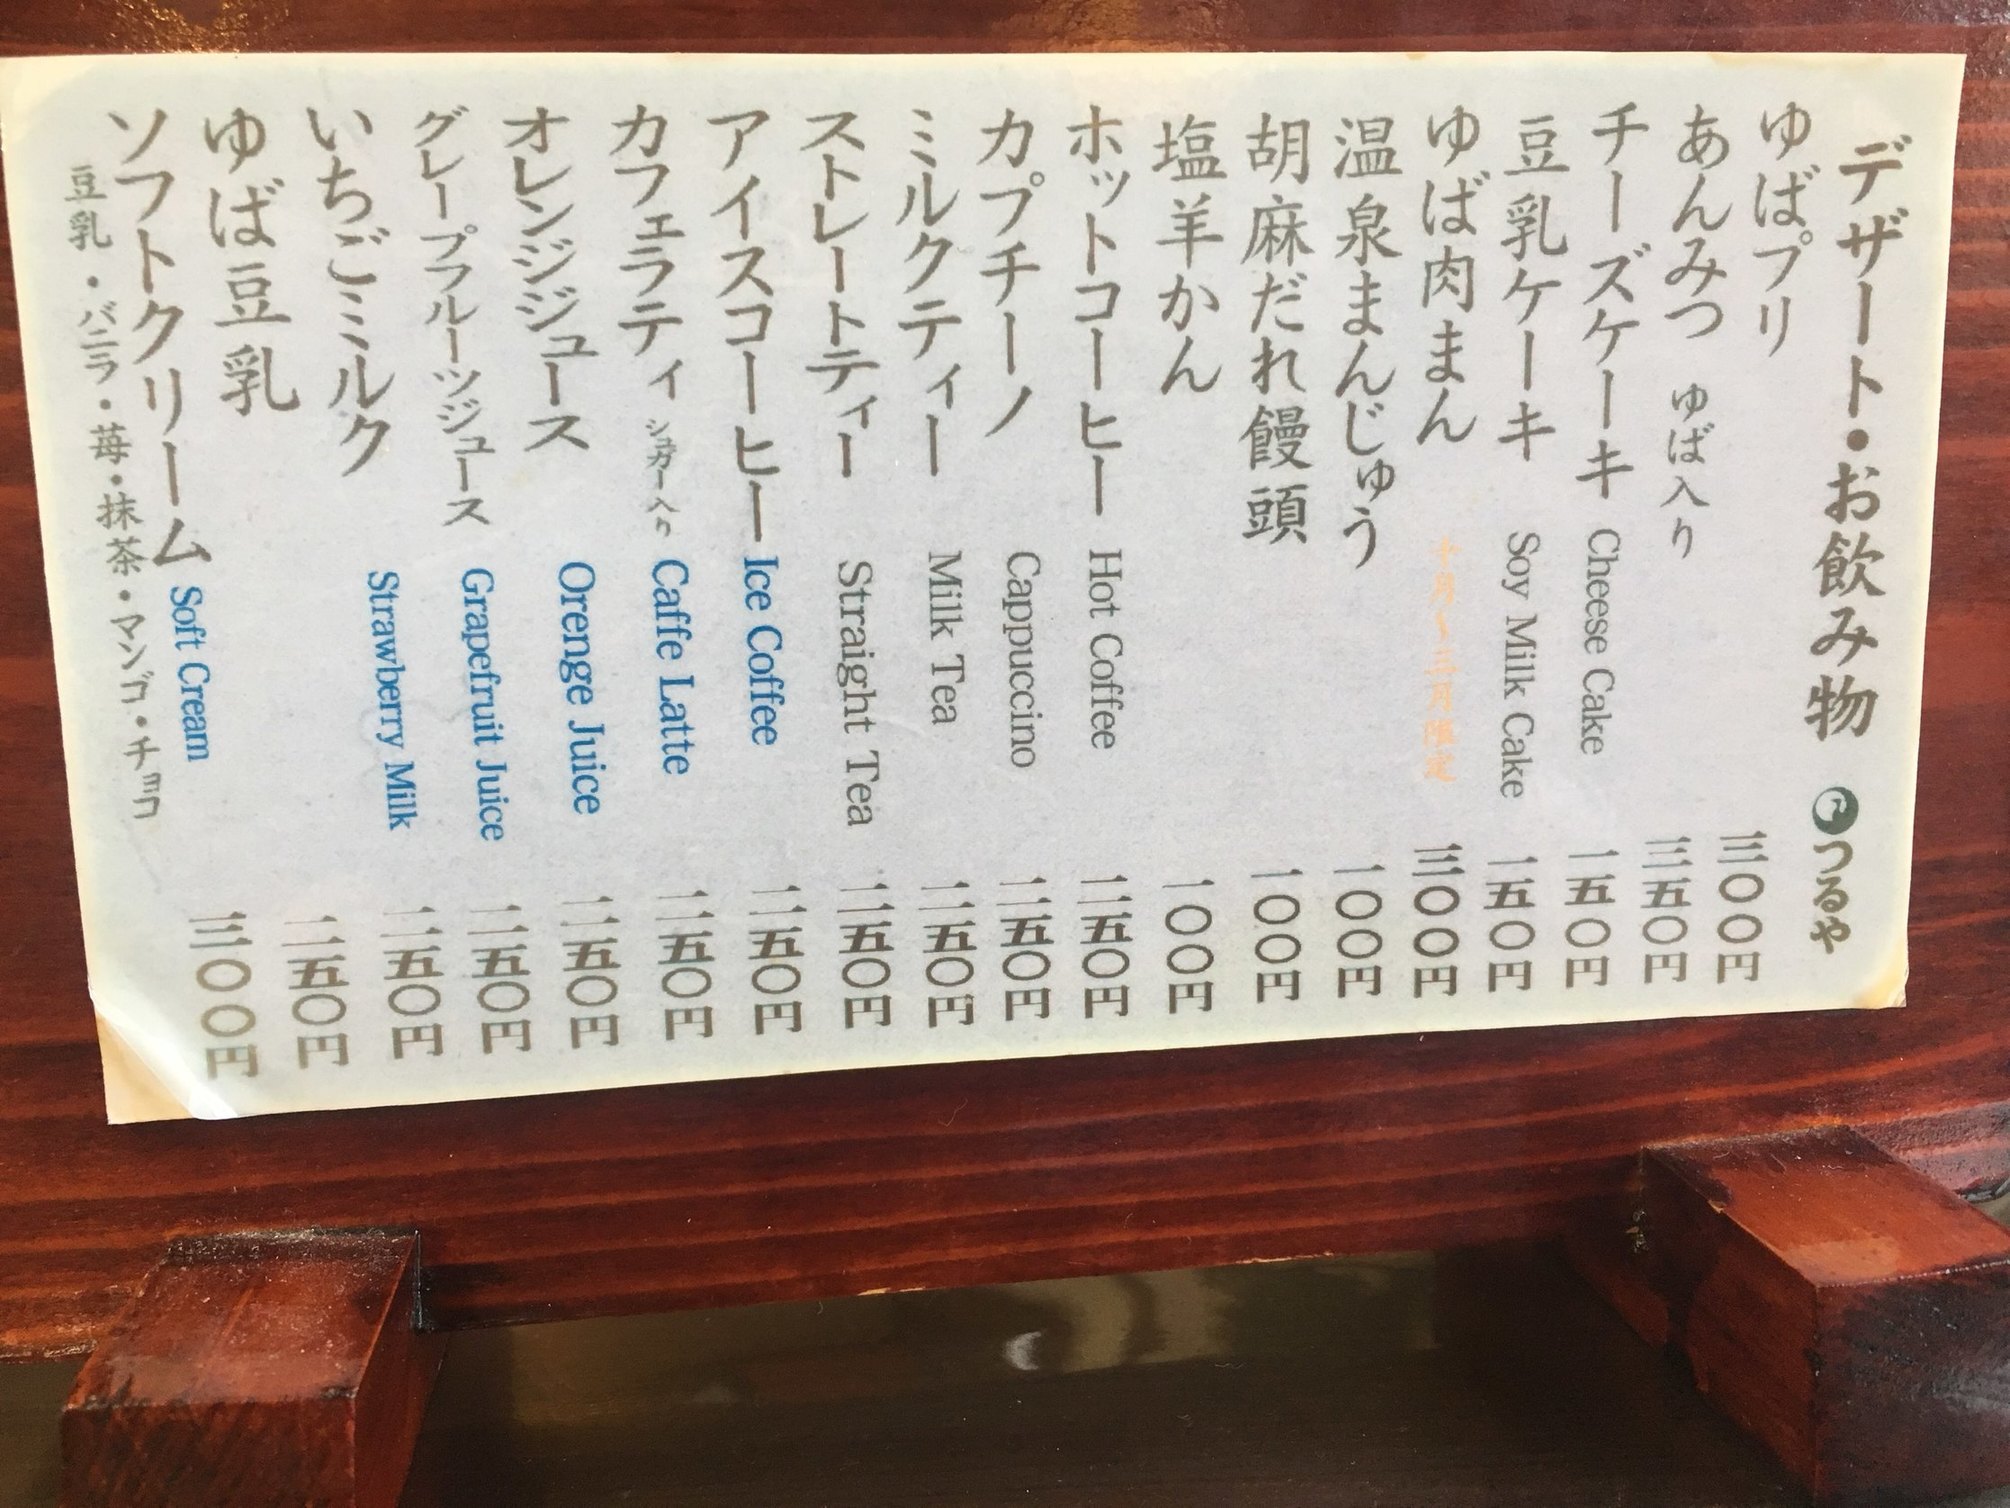 デザート・お飲み物 つるや
ゆばプリ 三〇〇円
あんみつ ゆば入り 三五〇円
チーズケーキ Cheese Cake 一五〇円
豆乳ケーキ Soy Milk Cake 一五〇円
ゆば肉まん 十月〜三月限定 三〇〇円
温泉まんじゅう 一〇〇円
胡麻だれ饅頭 一〇〇円
塩羊かん 一〇〇円
ホットコーヒー Hot Coffee 二五〇円
カプチーノ Cappuccino 二五〇円
ミルクティー Milk Tea 二五〇円
ストレートティー Straight Tea 二五〇円
アイスコーヒー Ice Coffee 二五〇円
カフェラティ シュガー入り Caffe Latte 二五〇円
オレンジジュース Orenge Juice 二五〇円
グレープフルーツジュース Grapefruit Juice 二五〇円
いちごミルク Strawberry Milk 二五〇円
ゆば豆乳 二五〇円
ソフトクリーム Soft Cream 三〇〇円
豆乳・バニラ・苺・抹茶・マンゴ・チョコ